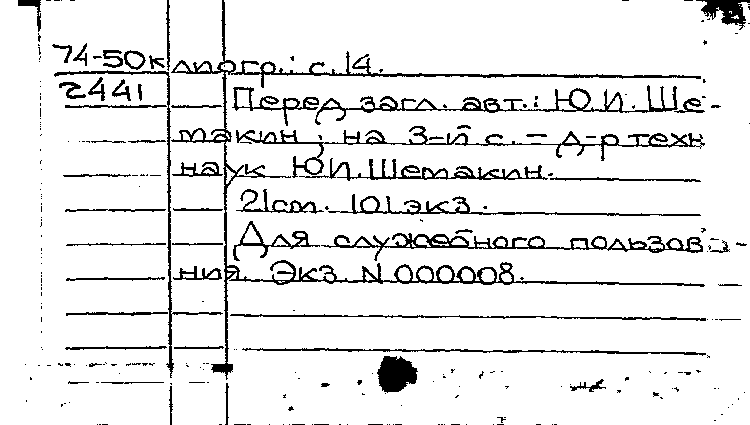 74-50к липогр.: с. 14.
2441 Перед загл. авт.: Ю.И. Ше-
макин; на 3-й с. – д-р техн
наук Ю.И. Шемакин.
21см. 101 экз.
Для служебного пользова-
ния. Экз. N 000008.